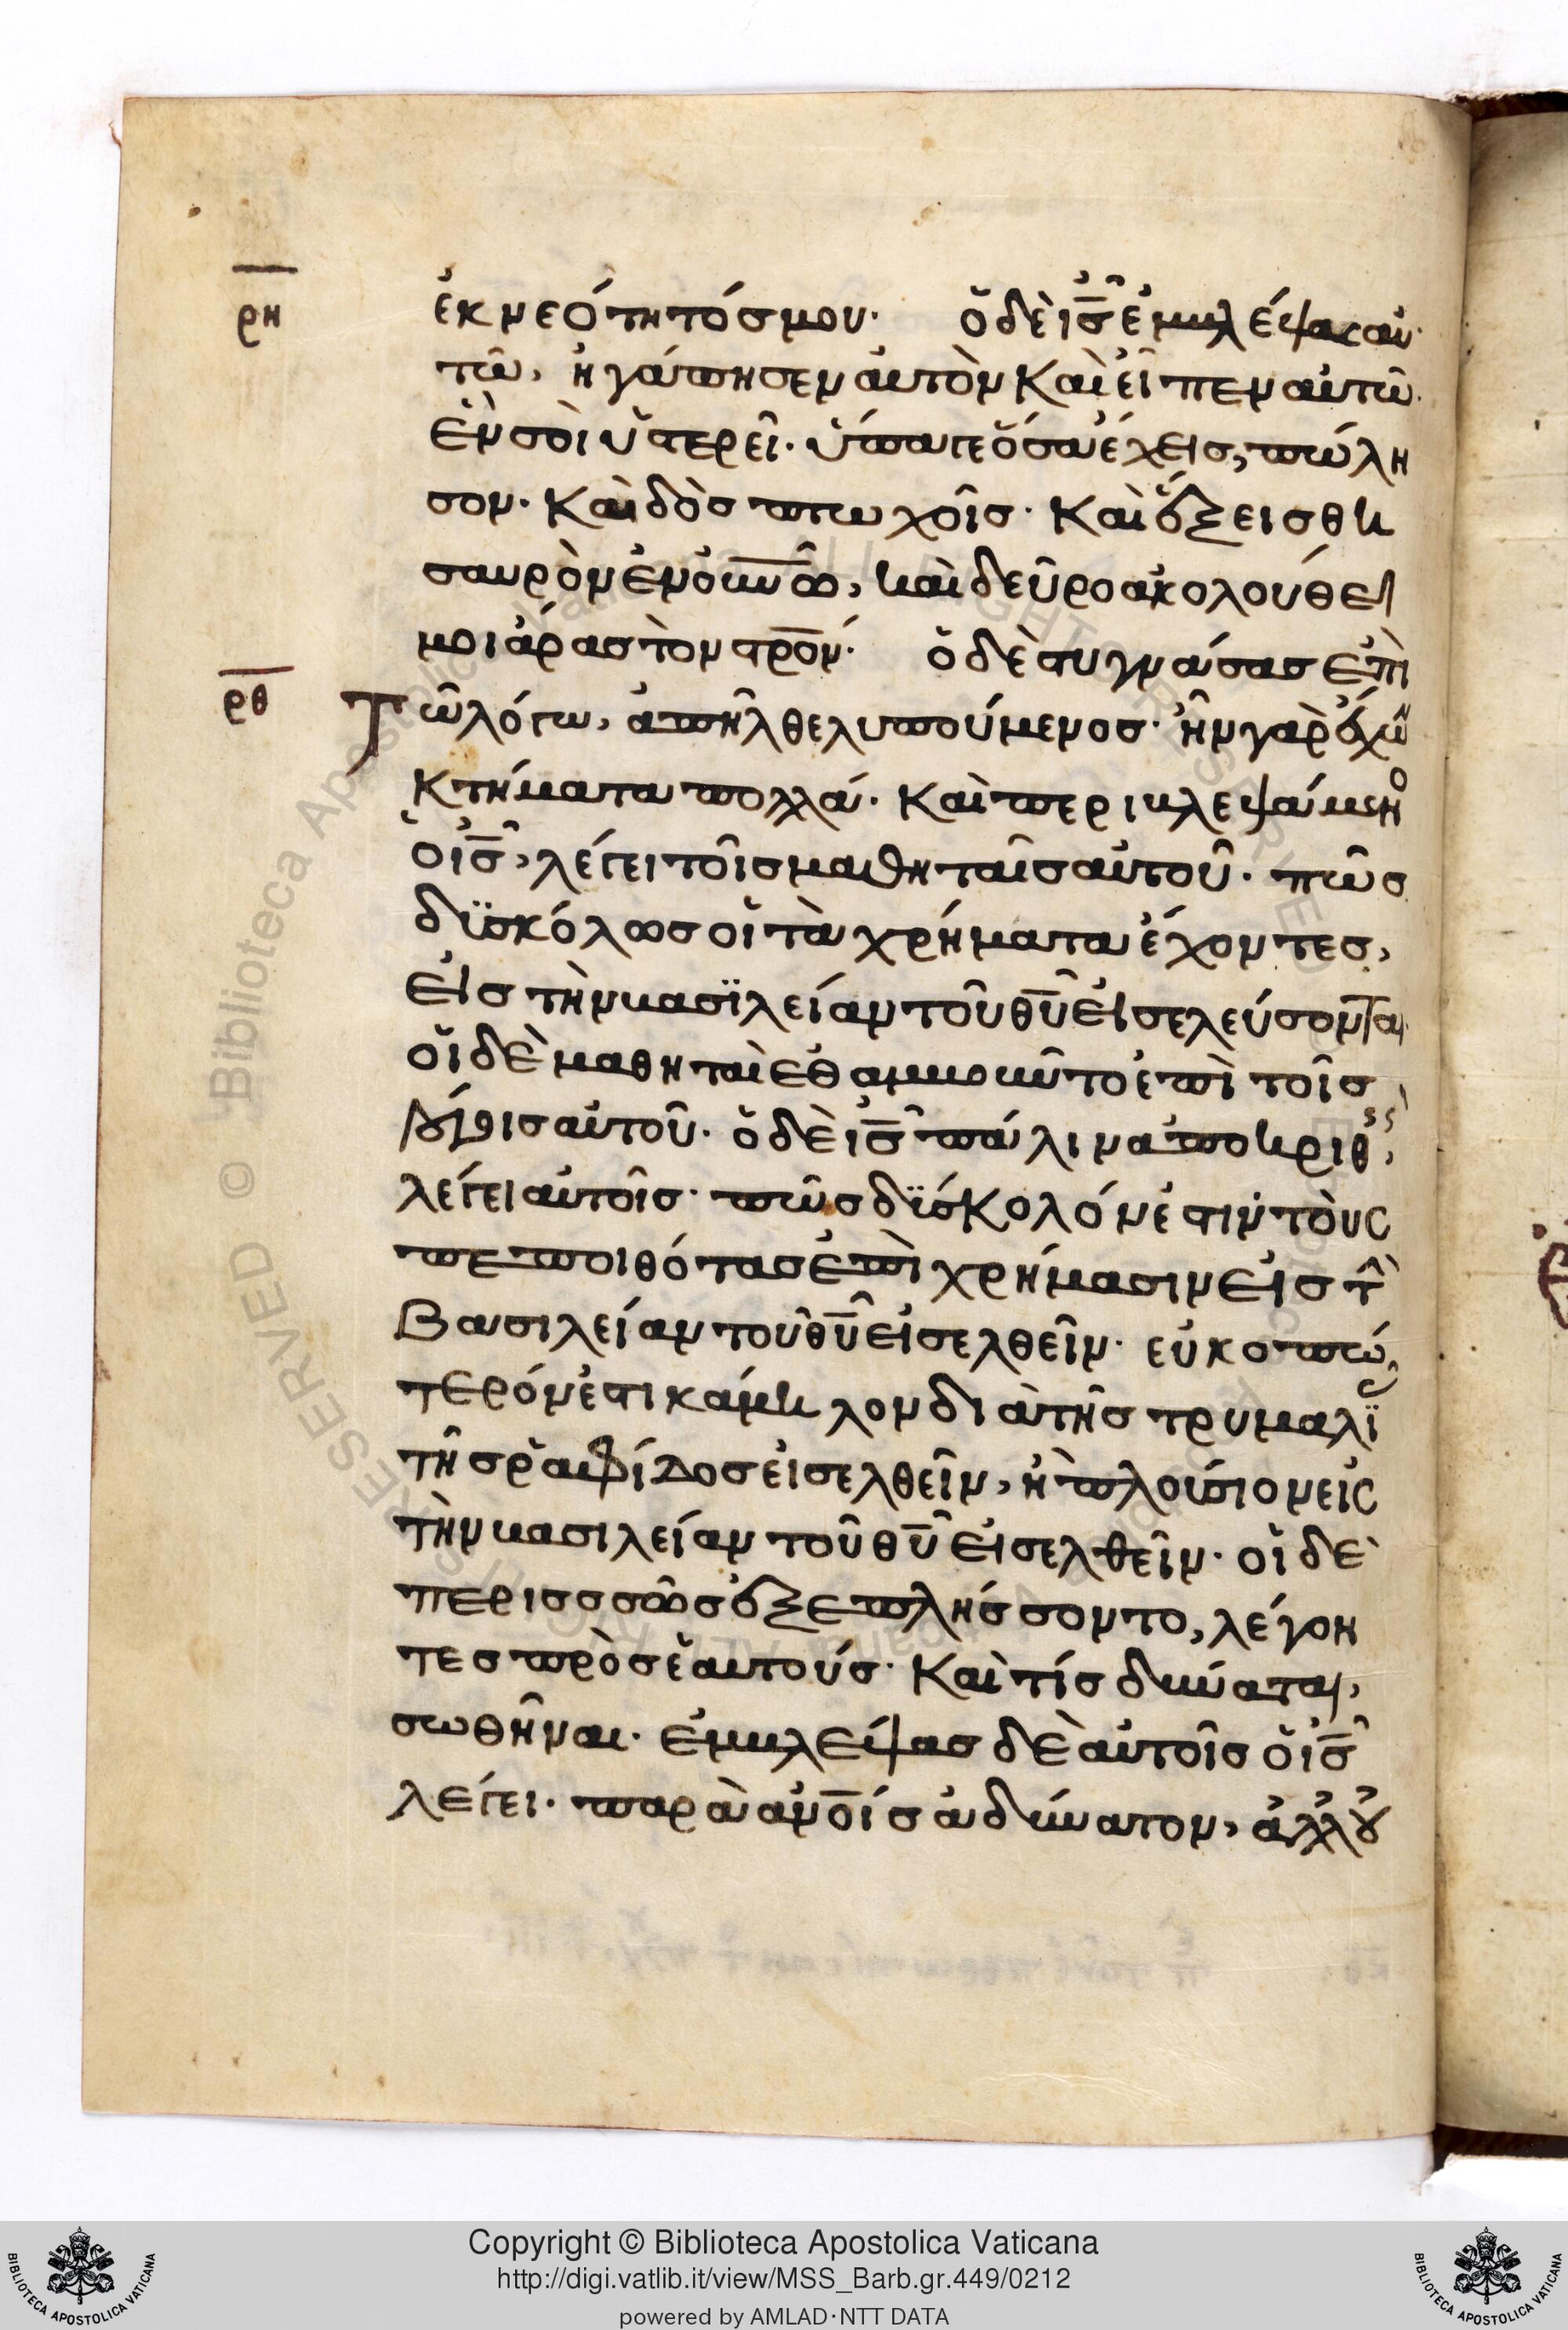 ρη
ἐκ νεότητός μου. ὁ δὲ ις̅ ἐμβλέψας αὐ
τῶ, ἠγάπησεν αὐτὸν καὶ εἶπεν αὐτῶ.
ἕν σοι ὑστερεῖ. ὕπαγε ὅσα ἔχεις, πώλη
σον. καὶ δὸς πτωχοῖς. καὶ ἕξεις θη
σαυρὸν ἐν οὐνω̅, καὶ δεῦρο ἀκολούθει
μοι ἄρας τὸν στρο̅ν. ὁ δὲ στυγνάσας ἐπὶ
ρθ
Τῶ λόγω, ἀπῆλθε λυπούμενος. ἦν γὰρ ἔχω
κτήματα πολλά. καὶ περιβλεψάμεν
ὁ ις̅, λέγει τοῖς μαθηταῖς αὐτοῦ. πῶς
δϊσκόλως οἱ τὰ χρήματα ἔχοντες,
εἰς τὴν βασϊλείαν τοῦ θυ̅ εἰσελεύσονται
οἱ δὲ μαθηταὶ ἐθαμβοῦντο ἐπὶ τοῖς
λόγοις αὐτοῦ. ὁ δὲ ις̅ πάλιν ἀποκριθ,
λέγει αὐτοῖς. πῶς δϊσκολόν ἐστιν τοὺς
πεποιθότας ἐπὶ χρήμασιν εἰς τ
βασιλείαν τοῦ θυ̅ εἰσελθεῖν. εὐκοπώ
τερόν ἐστι κάμηλον διὰ τῆς τρυμαλϊ
τῆς ῥαφίδος εἰσελθεῖν, ἢ πλούσιον εἰς
τὴν βασιλείαν τοῦ θυ̅ εἰσελθεῖν. οἱ δὲ
περισσσῶς ἐξεπλήσσοντο, λέγον
τες πρὸς ἑαυτούς. καὶ τίς δύναται,
σωθῆναι. ἐμβλέψας δὲ αὐτοῖς ὁ ις̅
λέγει. παρὰ ἀνο̅ίς ἀδύνατον, ἀλλ' οὐ
Copyright © Biblioteca Apostolica Vaticana
http://digi.vatlib.it/view/MSS_Barb.gr.449/0212
powered by AMLAD·NTT DATA